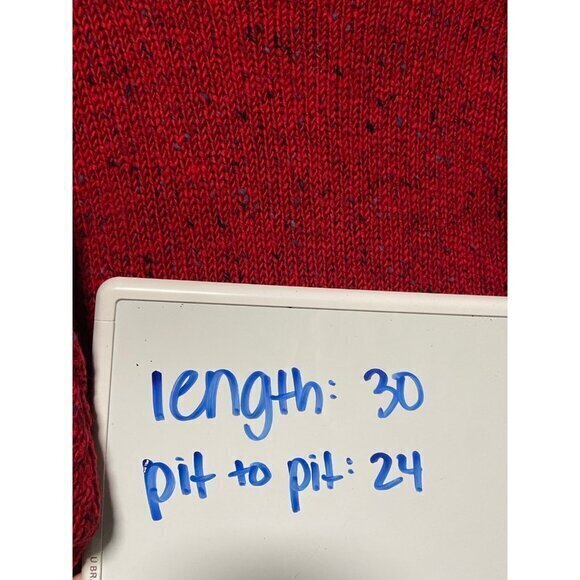 length: 30
pit to pit: 24
U BR